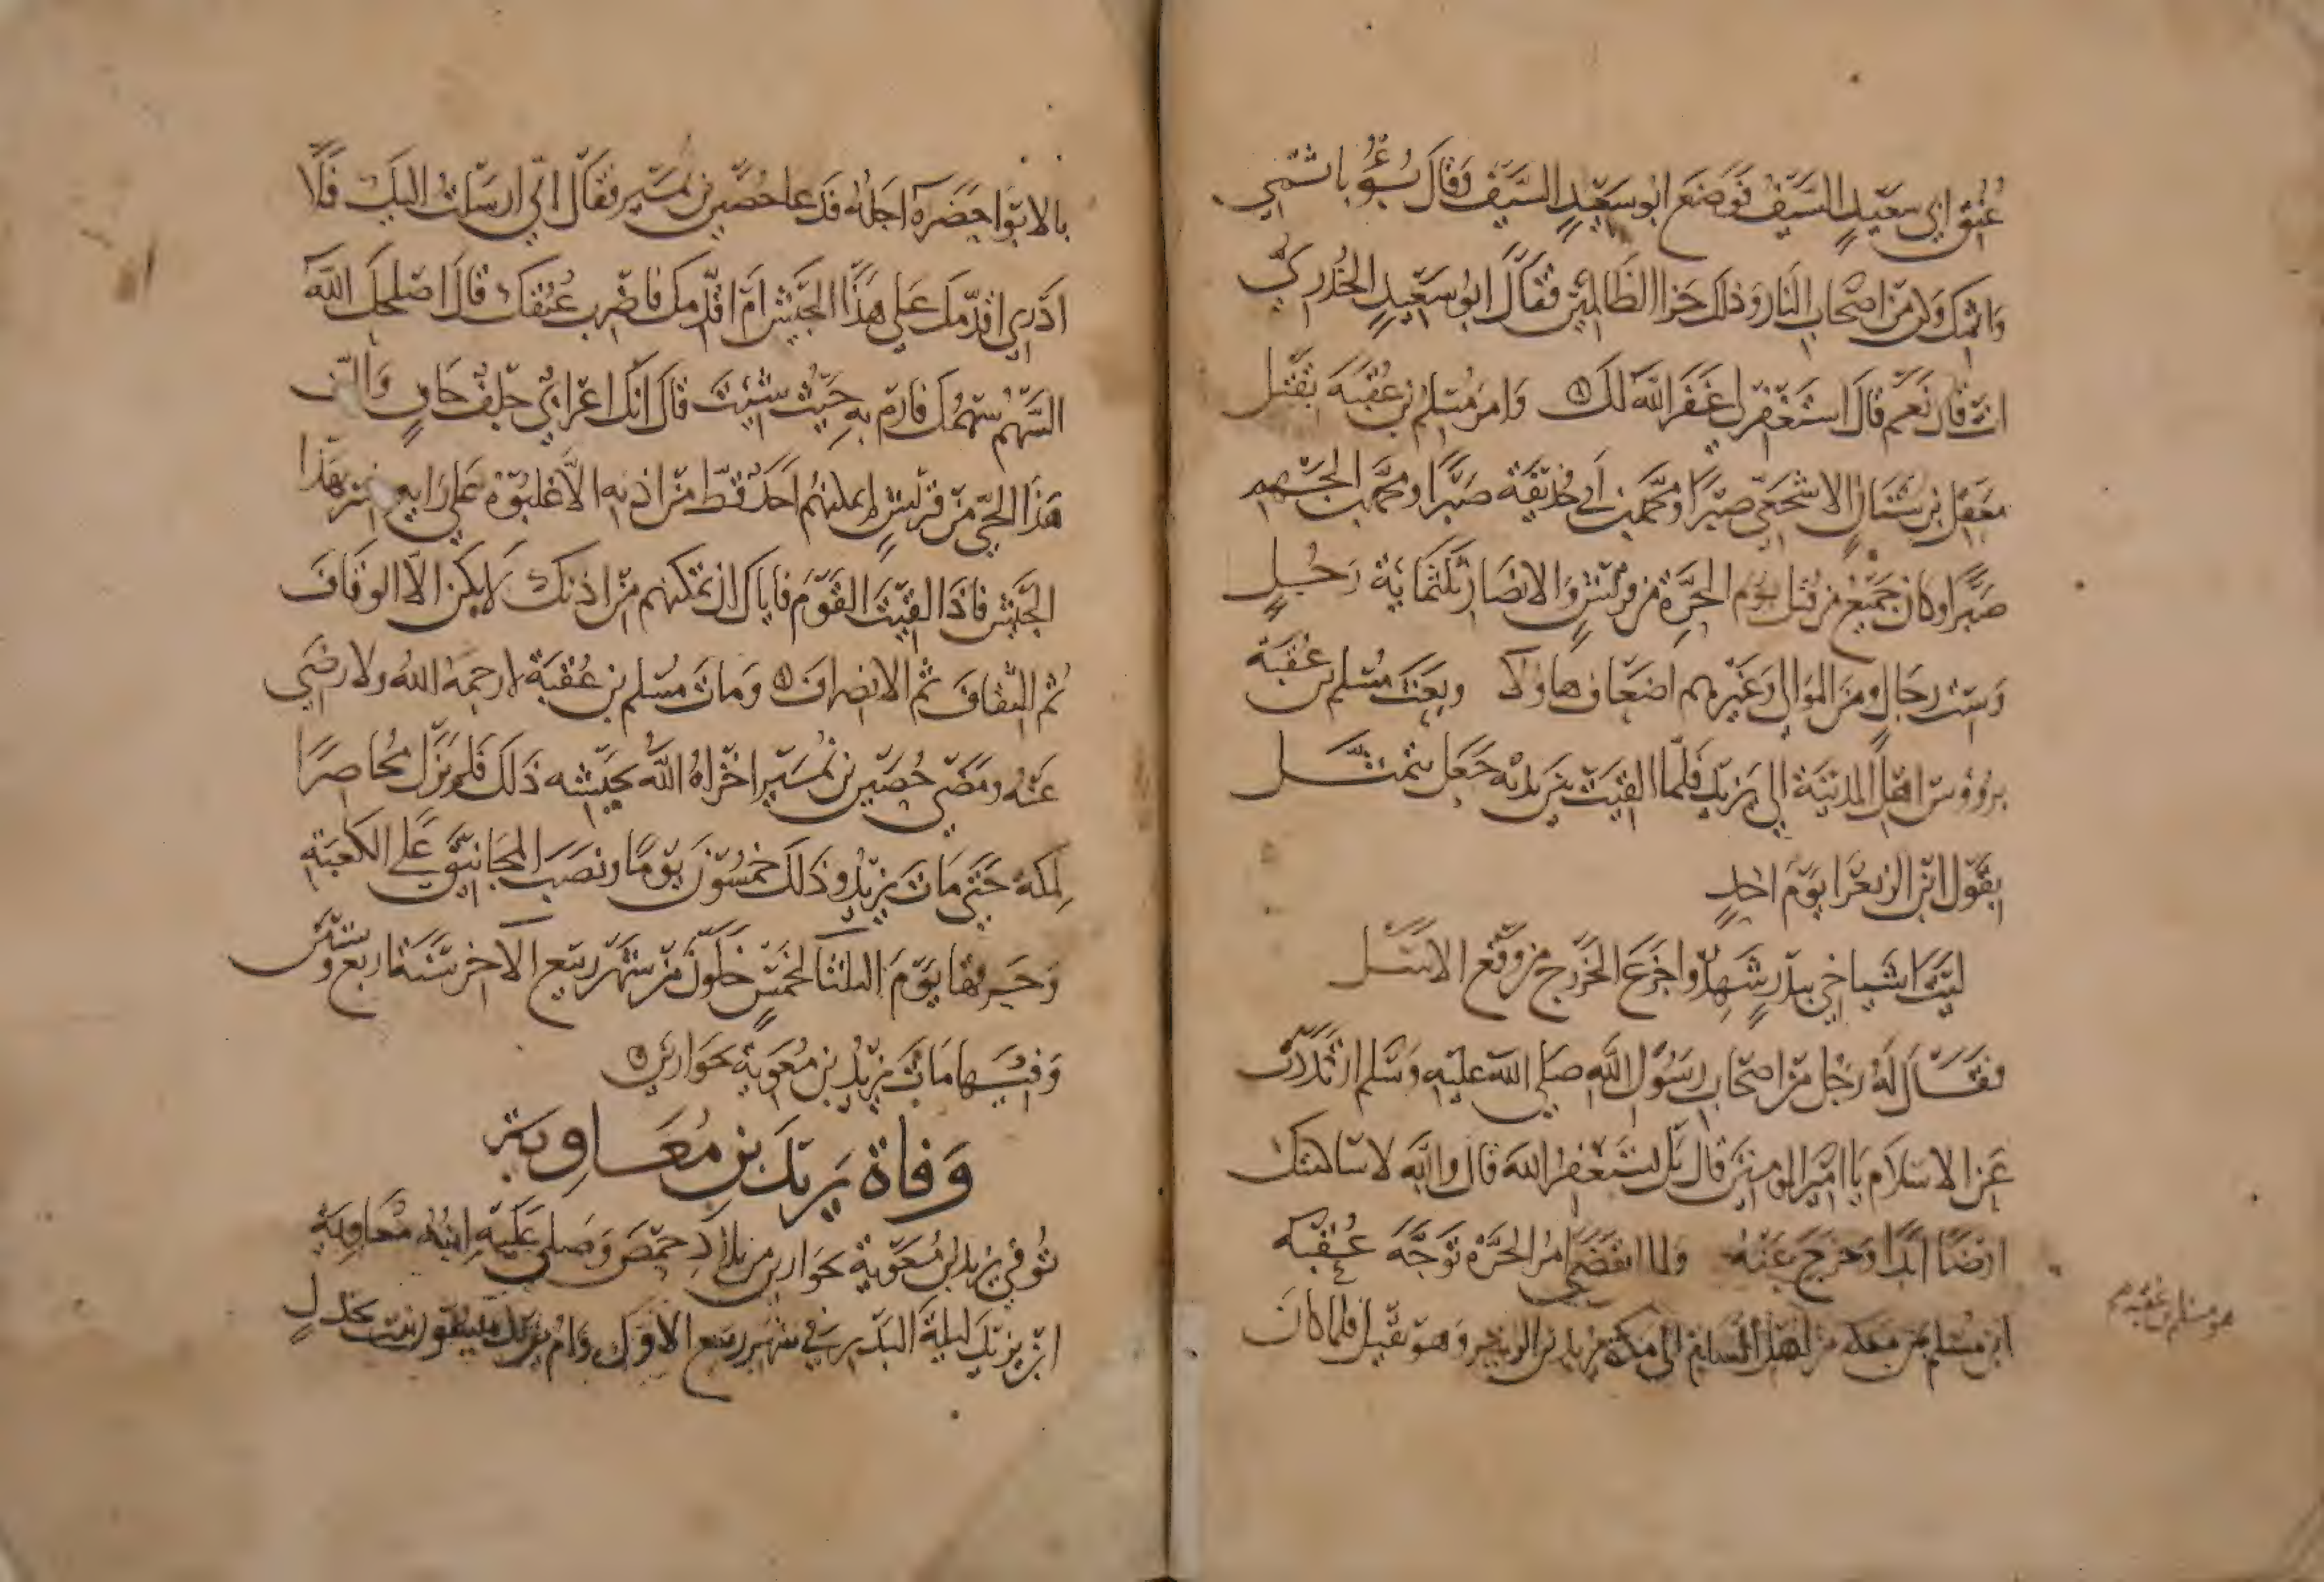 عُنُق ابي سعيدٍ السيف فوضع ابو سعيدٍ السيف وقال بُؤْ باثمي
واثمك وكن من اصحاب النار وذلك جزا الظالمين فقال ابو سعيدٍ الخدري
انت قال نعم قال استغفر لي غفر الله لك وامر مسلم بن عقبة بقتل
معقل بن سنان الاشجعي صبرًا ومحمد بن ابي حذيفة صبرًا ومحمد بن الجهم
صبرًا وكان جميع من قتل يوم الحرة من قريشٍ والانصار ثلثماية رجلٍ
وست رجالٍ ومن الموالي وغيرهم اضعاف هاولا وبعث مسلم بن عقبة
برؤوس اهل المدينة الي يزيد فلما القيت بين يديه جعل يتمثل
بقول ابن الزبعرا يوم احدٍ
ليت اشياخي ببدرٍ شهدوا جزع الخزرج من وقع الاسل
فقال له رجل من اصحاب رسول الله صلي الله عليه وسلم ارتددت
عن الاسلام يا امير المومنين قال بل نستغفر الله قال والله لا ساكنتك
ارضًا ابدًا وخرج عنه ولما انقضي امر الحرة توجه عقبة
ابن مسلم بمن معه من اهل الشام الي مكة يريد ابن الزبير وهو ثقيل فلما كان
هو مسلم بن عقبة
بالابوا حضره اجله فدعا حصين بن نمير فقال اني ارسلت اليك فلا
ادري اقدمك علي هذا الجيش ام اقدمك فاضرب عنقك قال اصلحك الله
السهم سهمك فارم به حيث شيت قال انك اعرابي جلف جافٍ وان
هذا الحي من قريشٍ لم يمكنهم احد قط من اذنه الا غلبوه علي رايه فسر بهذا
الجيش فاذا القيت القوم فاياك ان تمكنهم من اذنك لا يكن الا الوقاف
ثم الثقاف ثم الانصراف ومات مسلم بن عقبة لا رحمه الله ولا رضي
عنه ومضي حصين بن نمير اخزاه الله بجيشه ذلك فلم يزل محاصرًا
لمكة حتي مات يزيد وذلك خمسون يومًا ونصب المجانيق علي الكعبة
وحرقها يوم الثلثا لخمس خلون من شهر ربيع الاخر سنة اربع وستين
وفيها مات يزيد بن معوية بحوارين
وفاة يزيد بن معاوية
توفي يزيد بن معوية بحوارين من بلاد حمص وصلي عليه ابنه معاوية
ابن يزيد ليلة البدر في شهر ربيع الاول وام يزيد ميسون بنت بحدلٍ